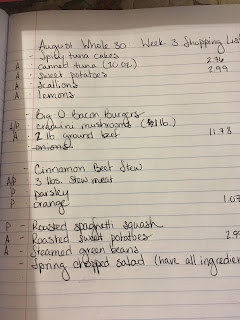 August Whole 30 Week 3 Shopping List
- Spicy tuna cakes
A - canned tuna (10 oz.) 2.76
A - sweet potatoes 2.99
A - scallions
A - lemons
- Big O Bacon Burgers
A/P - cremini mushrooms ( 1 lb.)
A - 2 lb ground beef 11.78
- onions
- Cinnamon Beef Stew
A/P 3 lbs. stew meat
P parsley
P orange 1.07
P - Roasted spaghetti squash
A - Roasted sweet potatoes 2.99
A - Steamed green beans
- Spring chopped salad (have all ingredien